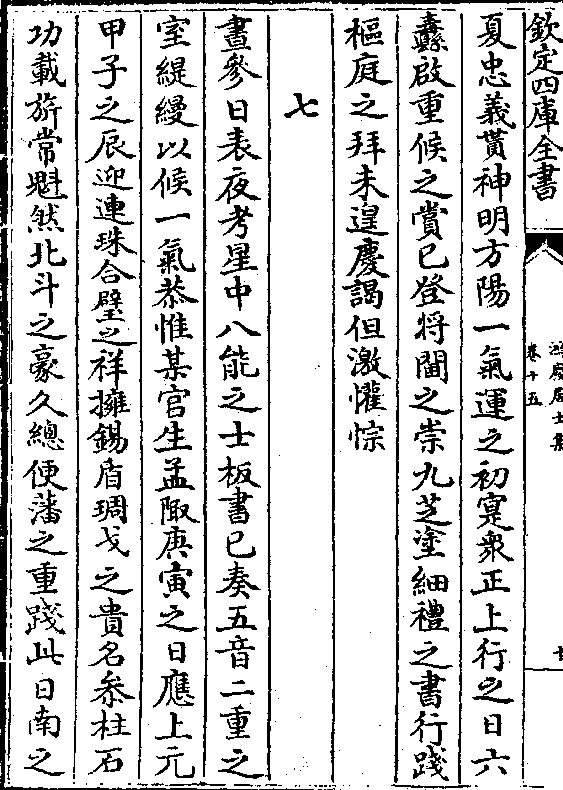 欽定四庫全書
卷十五
夏忠義貫神明方陽一氣運之初寔衆正上行之日六
纛啟重候之賞已登將閫之崇九芝塗細禮之書行踐
樞庭之拜未遑慶謁但激懽悰
七
晝參日表夜考星中八能之士板書已奏五音二重之
室緹縵以候一氣恭惟某官生孟陬庚寅之日應上元
甲子之辰迎連珠合璧之祥擁錫盾琱戈之貴名叅柱石
功載旂常魁然北斗之豪久總便藩之重踐此日南之